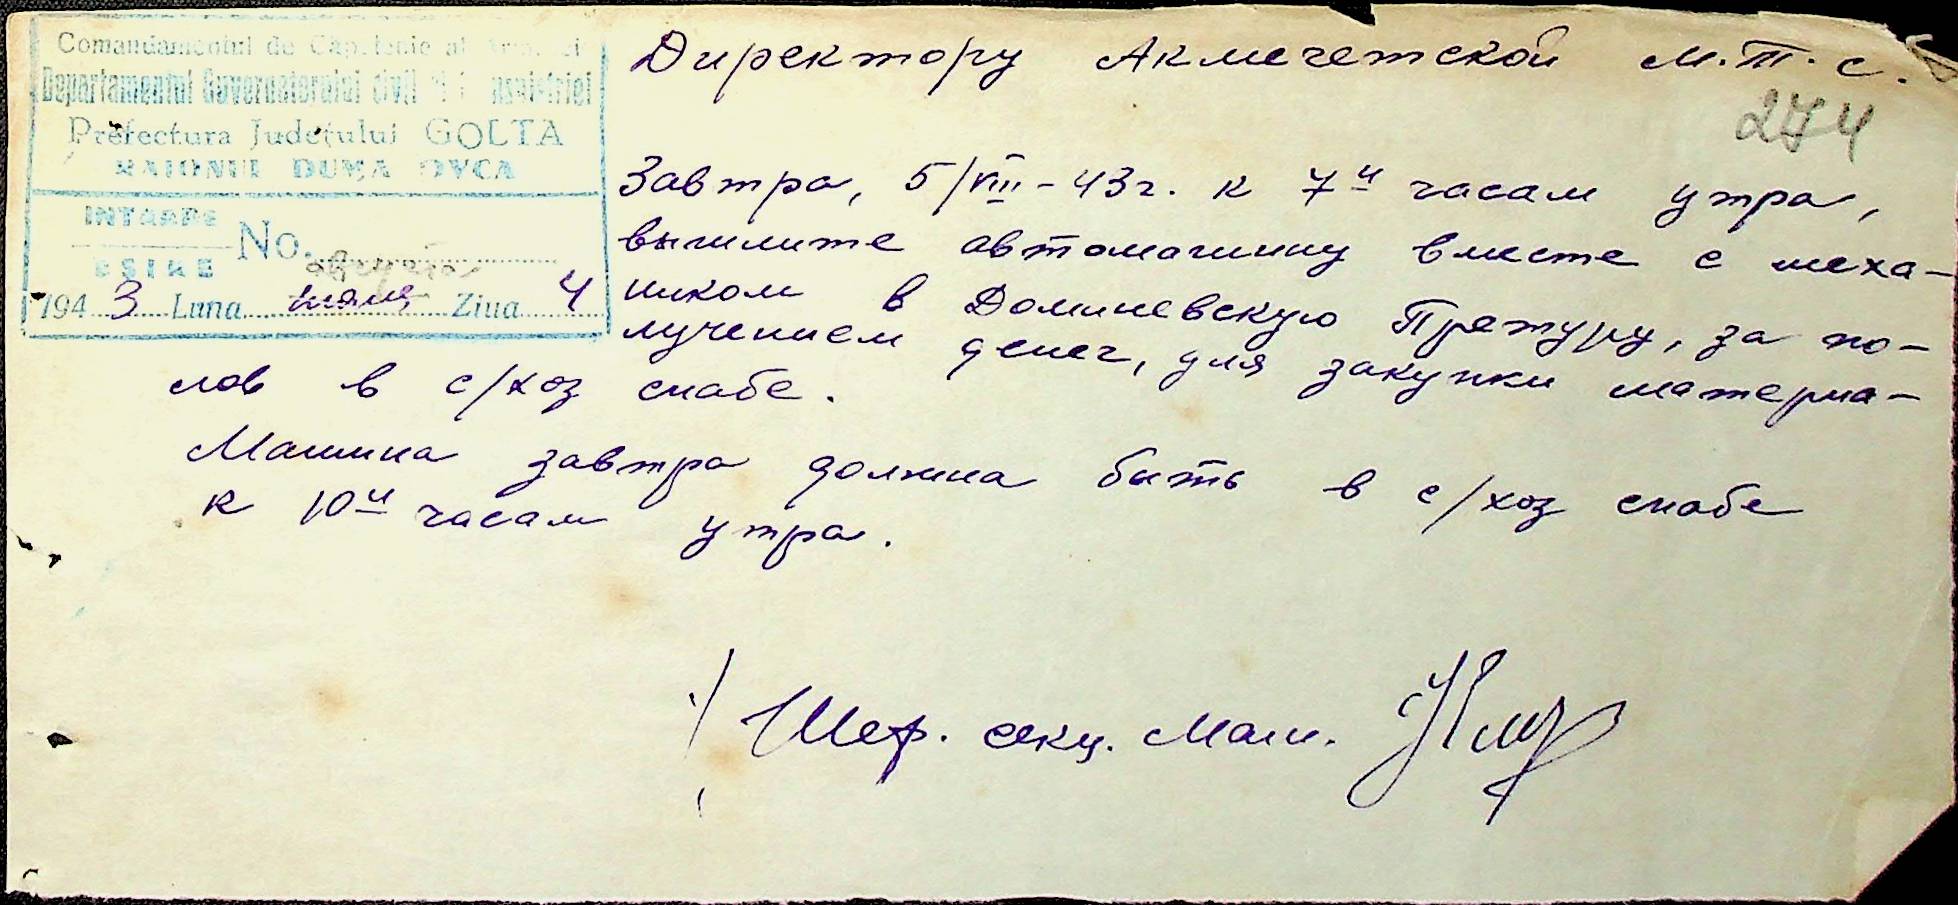 Comandamentul de Căpetenie al Armatei
Departamentul Guvernatorului civil al Transnistriei
Prefectura Județului GOLTA
RAIONUL DUMANOVCA
INTRARE
IESIRE
No.
августа
194 3 Luna июля Ziua 4
Директору Акмечетской М.Т.С.
274
Завтра, 5/VIII-43г. к 7ч часам утра,
вышлите автомашину вместе с меха-
ником в Доманевскую Претуру, за по-
лучением денег, для закупки материа-
лов в с/хоз снабе.
Машина завтра должна быть в с/хоз снабе
к 10ч часам утра.
Шеф. секц. Маш.